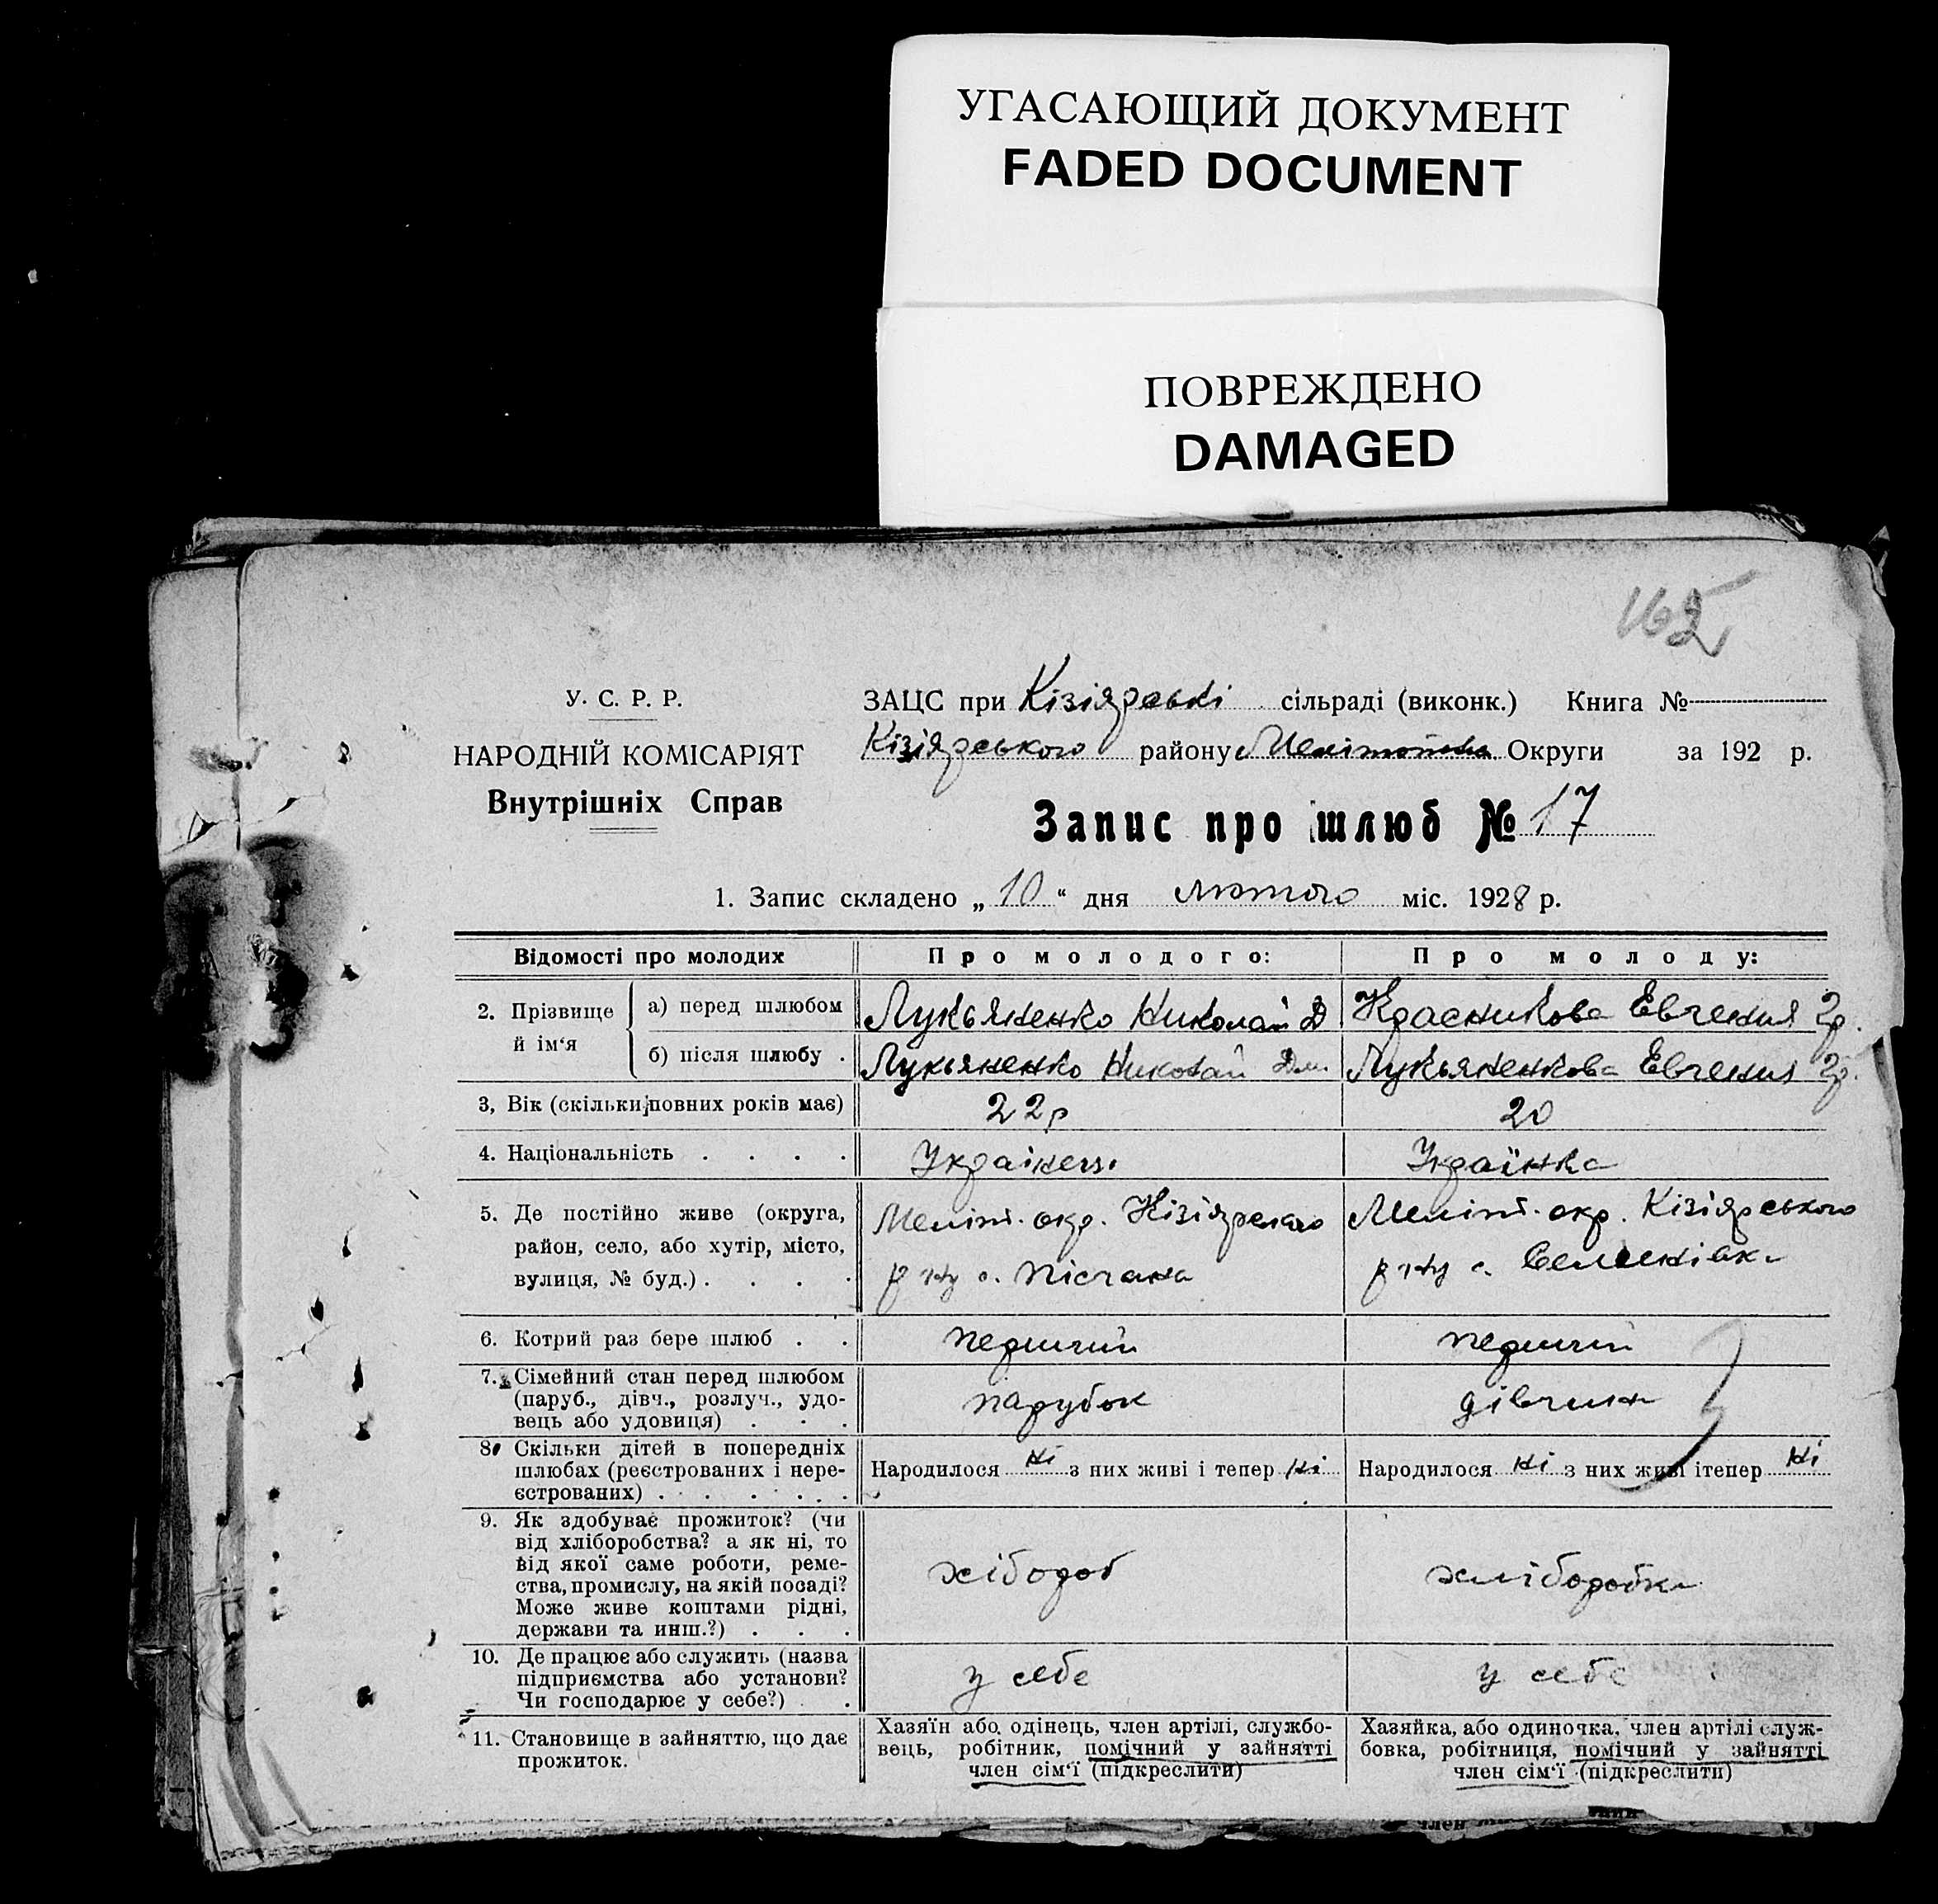 УГАСАЮЩИЙ ДОКУМЕНТ
FADED DOCUMENT
ПОВРЕЖДЕНО
DAMAGED
У. С. Р. Р.
НАРОДНІЙ КОМІСАРІЯТ
Внутрішніх Справ
ЗАЦС при Кізіярські сільраді (виконк.) Книга №
Кізіярського району Округи за 192 р.
Запис про шлюб № 17
1. Запис складено „ 10 “ дня лютого міс. 1928 р.
Відомості про молодих
Про молодого:
Про молоду:
2. Прізвище й ім‘я
а) перед шлюбом
Лукьяненко Николай Д
Красникова Евгения Гр.
б) після шлюбу .
Лукьяненко Николай Дм.
Лукьяненкова Евгения Гр.
3, Вік (скільки повних років має)
22р
20
4. Національність . . . .
Украінець
Украінка
5. Де постійно живе (округа,
район, село, або хутір, місто,
вулиця, № буд.) . . . .
Меліт. окр. Кізіярського
р-ну с. Пісчана
Меліт. окр. Кізіярського
р-ну с.
6. Котрий раз бере шлюб . .
перший
перший
7. Сімейний стан перед шлюбом
(паруб., дівч., розлуч., удо-
вець або удовиця) . . .
парубок
дівчина
8. Скільки дітей в попередніх
шлюбах (реєстрованих і нере-
єстрованих) . . . . . .
Народилося ні з них живі і тепер ні
Народилося ні з них живі ітепер ні
9. Як здобуває прожиток? (чи
від хліборобства? а як ні, то
від якої саме роботи, реме-
ства, промислу, на якій посаді?
Може живе коштами рідні,
держави та инш.?) . . .
хібороб
хліборобка
10. Де працює або служить (назва
підприємства або установи?
Чи господарює у себе?) . .
у себе
у себе
11. Становище в зайняттю, що дає
прожиток.
Хазяїн або одінець, член артілі, службо-
вець, робітник, помічний у зайнятті
член сім‘ї (підкреслити)
Хазяйка, або одиночка, член артілі служ-
бовка, робітниця, помічний у зайнятті
член сім‘ї (підкреслити)